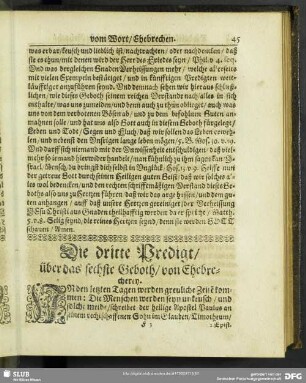 vom Wort / Ehebrechen. 45
was erbar / keusch und lieblich ist / nachtrachten / oder nachdencken / daß
sie es thun / mit denen werd der Herr des Friedes seyn / Philip. 4.
Und was dergleichen Gnaden Verheissungen mehr / welche allerseits
mit vielen Exempeln bestätiget / und in künfftigen Predigten weit-
läufftiger ausgeführet seynd. Und dennoch sehen wir hieraus
lichen / wie dieses Geboth seinen reichen Vorstand nach / alles in sich
enthalte / was uns zu meiden / und denn auch zu thun oblieget / auch was
uns von dem verbotenen Bösen ab / und zu dem befohlenen Guten an-
mahnen solle / und hat uns also Gott auch in diesem Geboth fürgelegt /
Leben und Todt / Segen und Fluch / daß wir sollen das Leben erweh-
len / und nebenst den Unserigen lange leben mögen /
Und darff sich niemand mit der Unwissenheit entschuldigen / daß viel-
mehr so jemand hierwider handelt / man kühnlich zu ihm sagen kan
der getreue Gott durch seinen Heiligen guten Geist / daß wir solches
les wol bedencken / und den rechten Verstand dieses Ge-
both also uns zu Hertzen führen / daß wir das böse
ten anhangen / auff daß unsere Hertzen gereiniget / der Verheissung
JESu Christi aus Gnaden theilhafftig werden / da er spricht / Matth.
5. v. 8. Selig seynd / die reines Hertzen seynd / denn sie werden GOTT
schauen / Amen.
Die dritte Predigt /
über das sechste Geboth / von Ehebre-
cherey.
IN den letzten Tagen werden greuliche Zeit kom-
men: Die Menschen werden seyn unkeusch / und
schreibet der heilige Apostel Paulus an
seinen rechtschaffenen Sohn im Glauben / Timotheum /
F 3 2. Epist.
SLUB
Wir führen Wissen.
DFG